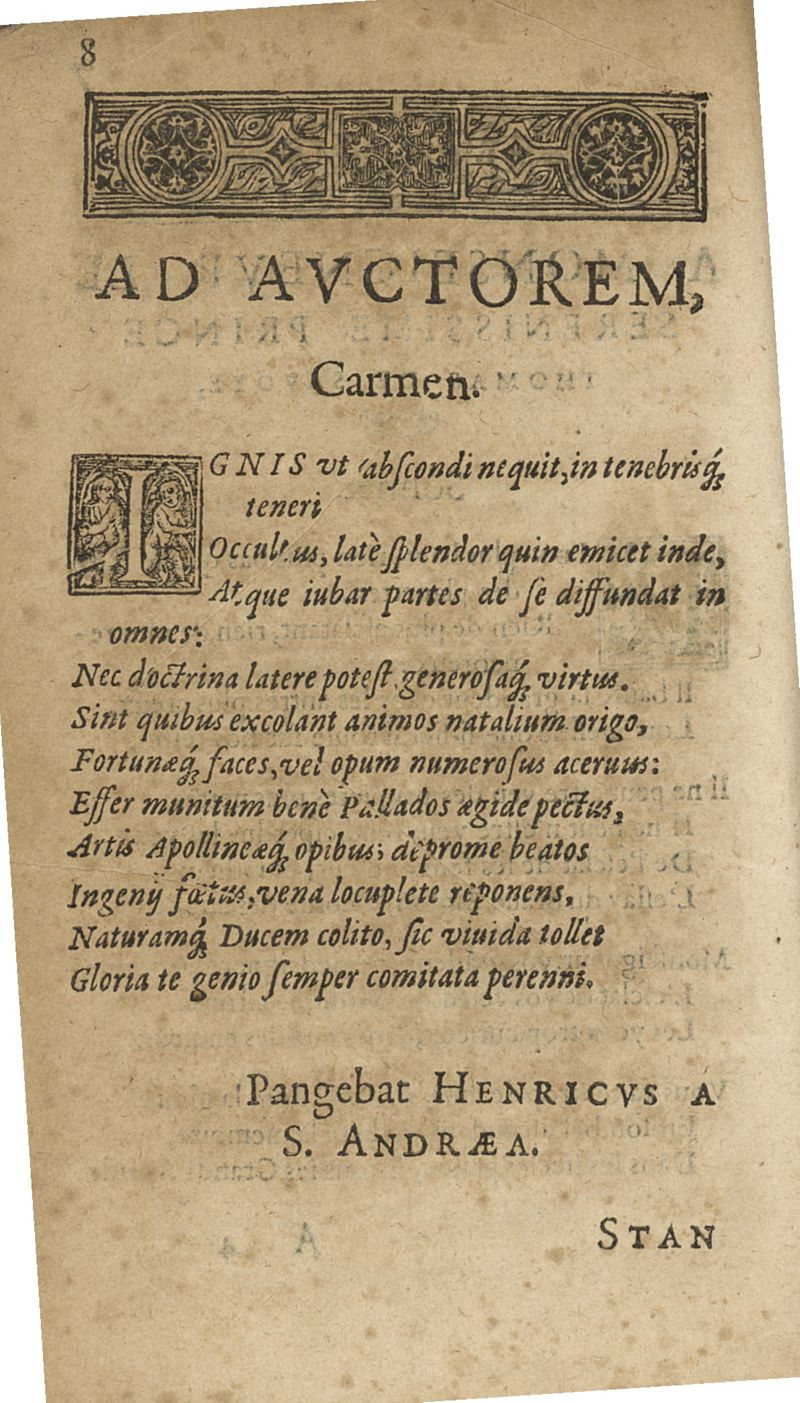 8
AD AVCTOREM,
Carmen.
IGNIS vt abſcondi nequit, in tenebrisq́;
teneri
Occultus, latè ſplendor quin emicet inde,
Atque iubar partes de ſe diffundat in
omnes:
Nec doctrina latere poteſt generoſaq́; virtus.
Sint quibus excolant animos natalium origo,
Fortunæq́; faces, vel opum numeroſus aceruus:
Effer munitum benè Pallados ægide pectus,
Artis Apollineæq́; opibus; deprome beatos
Ingenij fœtus, vena locuplete reponens,
Naturamq́; Ducem colito, ſic viuida tollet
Gloria te genio ſemper comitata perenni.
Pangebat HENRICVS A
S. ANDRÆA.
STAN